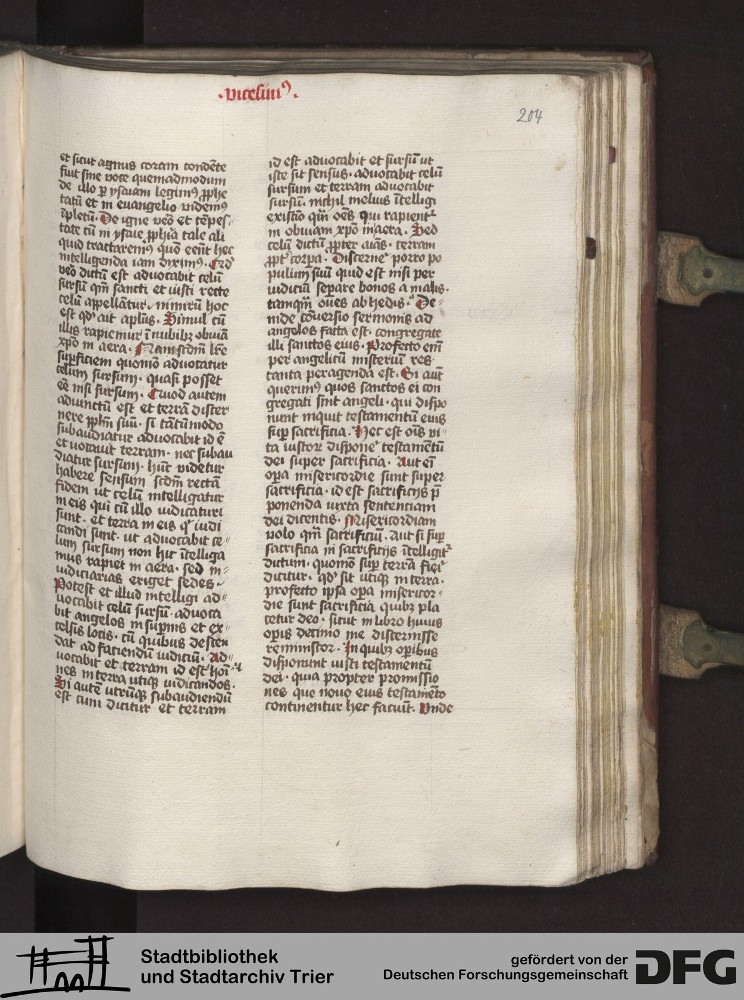 ·vicesimꝰ·
204
et sicut agnus coram tondēte
fuit sine voce quemadmodum
de illo ꝑ ysaiam legimꝰ ꝓphe
tatū et in euangelio videmꝰ
īpletū· De igne vēo et tēpes-
tate cū in ysaie ꝓphīa tale ali
quid tractaremꝰ quō eēnt hec
intelligenda iam diximꝰ· Qd
vēo dictū est aduocabit celū
sursū qm̄ sancti et iusti recte
celū appellātur· nimirū hoc
est qđ ait aplūs· Simul cū
illis rapiemur ī nubibꝫ obuiā
xp̄o in aera· Nam scdm̄ lr̄e
suꝑficiem quomō aduocatur
celum sursum· quasi posset
eē nisi sursum· Quod autem
adiunctū est et terrā discer
nere pplm̄ suū· si tātūmodo
subaudiatur aduocabit id ē
et vocauit terram· nec subau
diatur sursum· hūc videtur
habere sensum scdm̄ rectā
fidem ut celū intelligatur
in eis qui cū illo iudicaturi
sunt· et terra in eis qͥ iudi
candi sunt· ut aduocabit ce-
lum sursum non hic ītelliga
mus rapiet in aera· sed in-
iudiciarias eriget sedes·
Potest et illud intelligi ad-
uocabit celū sursū· aduoca
bit angelos in suꝑnis et ex-
celsis locis· cū quibus descen
dat ad faciendū iudiciū· Ad-
uocabit et terram id est hoī-
nes in terra utiqꝫ iudicandos·
Si autē utrūqꝫ subaudiendū
est cum dicitur et terram
id est aduocabit et sursū ut
iste sit sensus· aduocabit celū
sursum et terram aduocabit
sursū· nichil melius ītelligi
existīo qm̄ oēs qui rapientᷣ
in obuiam xp̄o in aera· Sed
celū dictū ꝓpter aīas· terram
ꝓpt̄ corpa· Discerne porro po
pulum suū quid est nisi per
iudiciū separe bonos a malis·
tamqm̄ oues ab hedis· De-
inde cōuersio sermonis ad
angelos facta est· congregate
illi sanctos eius· Profecto em̄
per angelicū misteriū res
tanta peragenda est· Si aut̄
querimꝰ quos sanctos ei con
gregati sint angeli· qui dispo
nunt inquit testamentū eius
suꝑ sacrificia· Hec est oīs vi-
ta iustor disponē testamētū
dei super sacrificia· Aut eī
opa misericordie sunt super
sacrificia· id est sacrificijs p̄
ponenda iuxta sentenciam
dei dicentis· Misericordiam
volo qm̄ sacrificiū· aut si suꝑ
sacrificia in sacrificijs ītelligitᷣ
dictum· quomō suꝑ terrā fieī
dicitur· qđ sit utiqꝫ in terra·
profecto ipsa opa misericor-
die sunt sacrificia quibꝫ pla
cetur deo· sicut in libro huius
opis decimo me discernisse
reminiscor· In quibꝫ opibus
disponunt iusti testamentū
dei· quia propter promissio
nes que nouo eius testamēto
continentur hec faciūt· Vnde
Stadtbibliothek
und Stadtarchiv Trier
gefördert von der
Deutschen Forschungsgemeinschaft
DFG